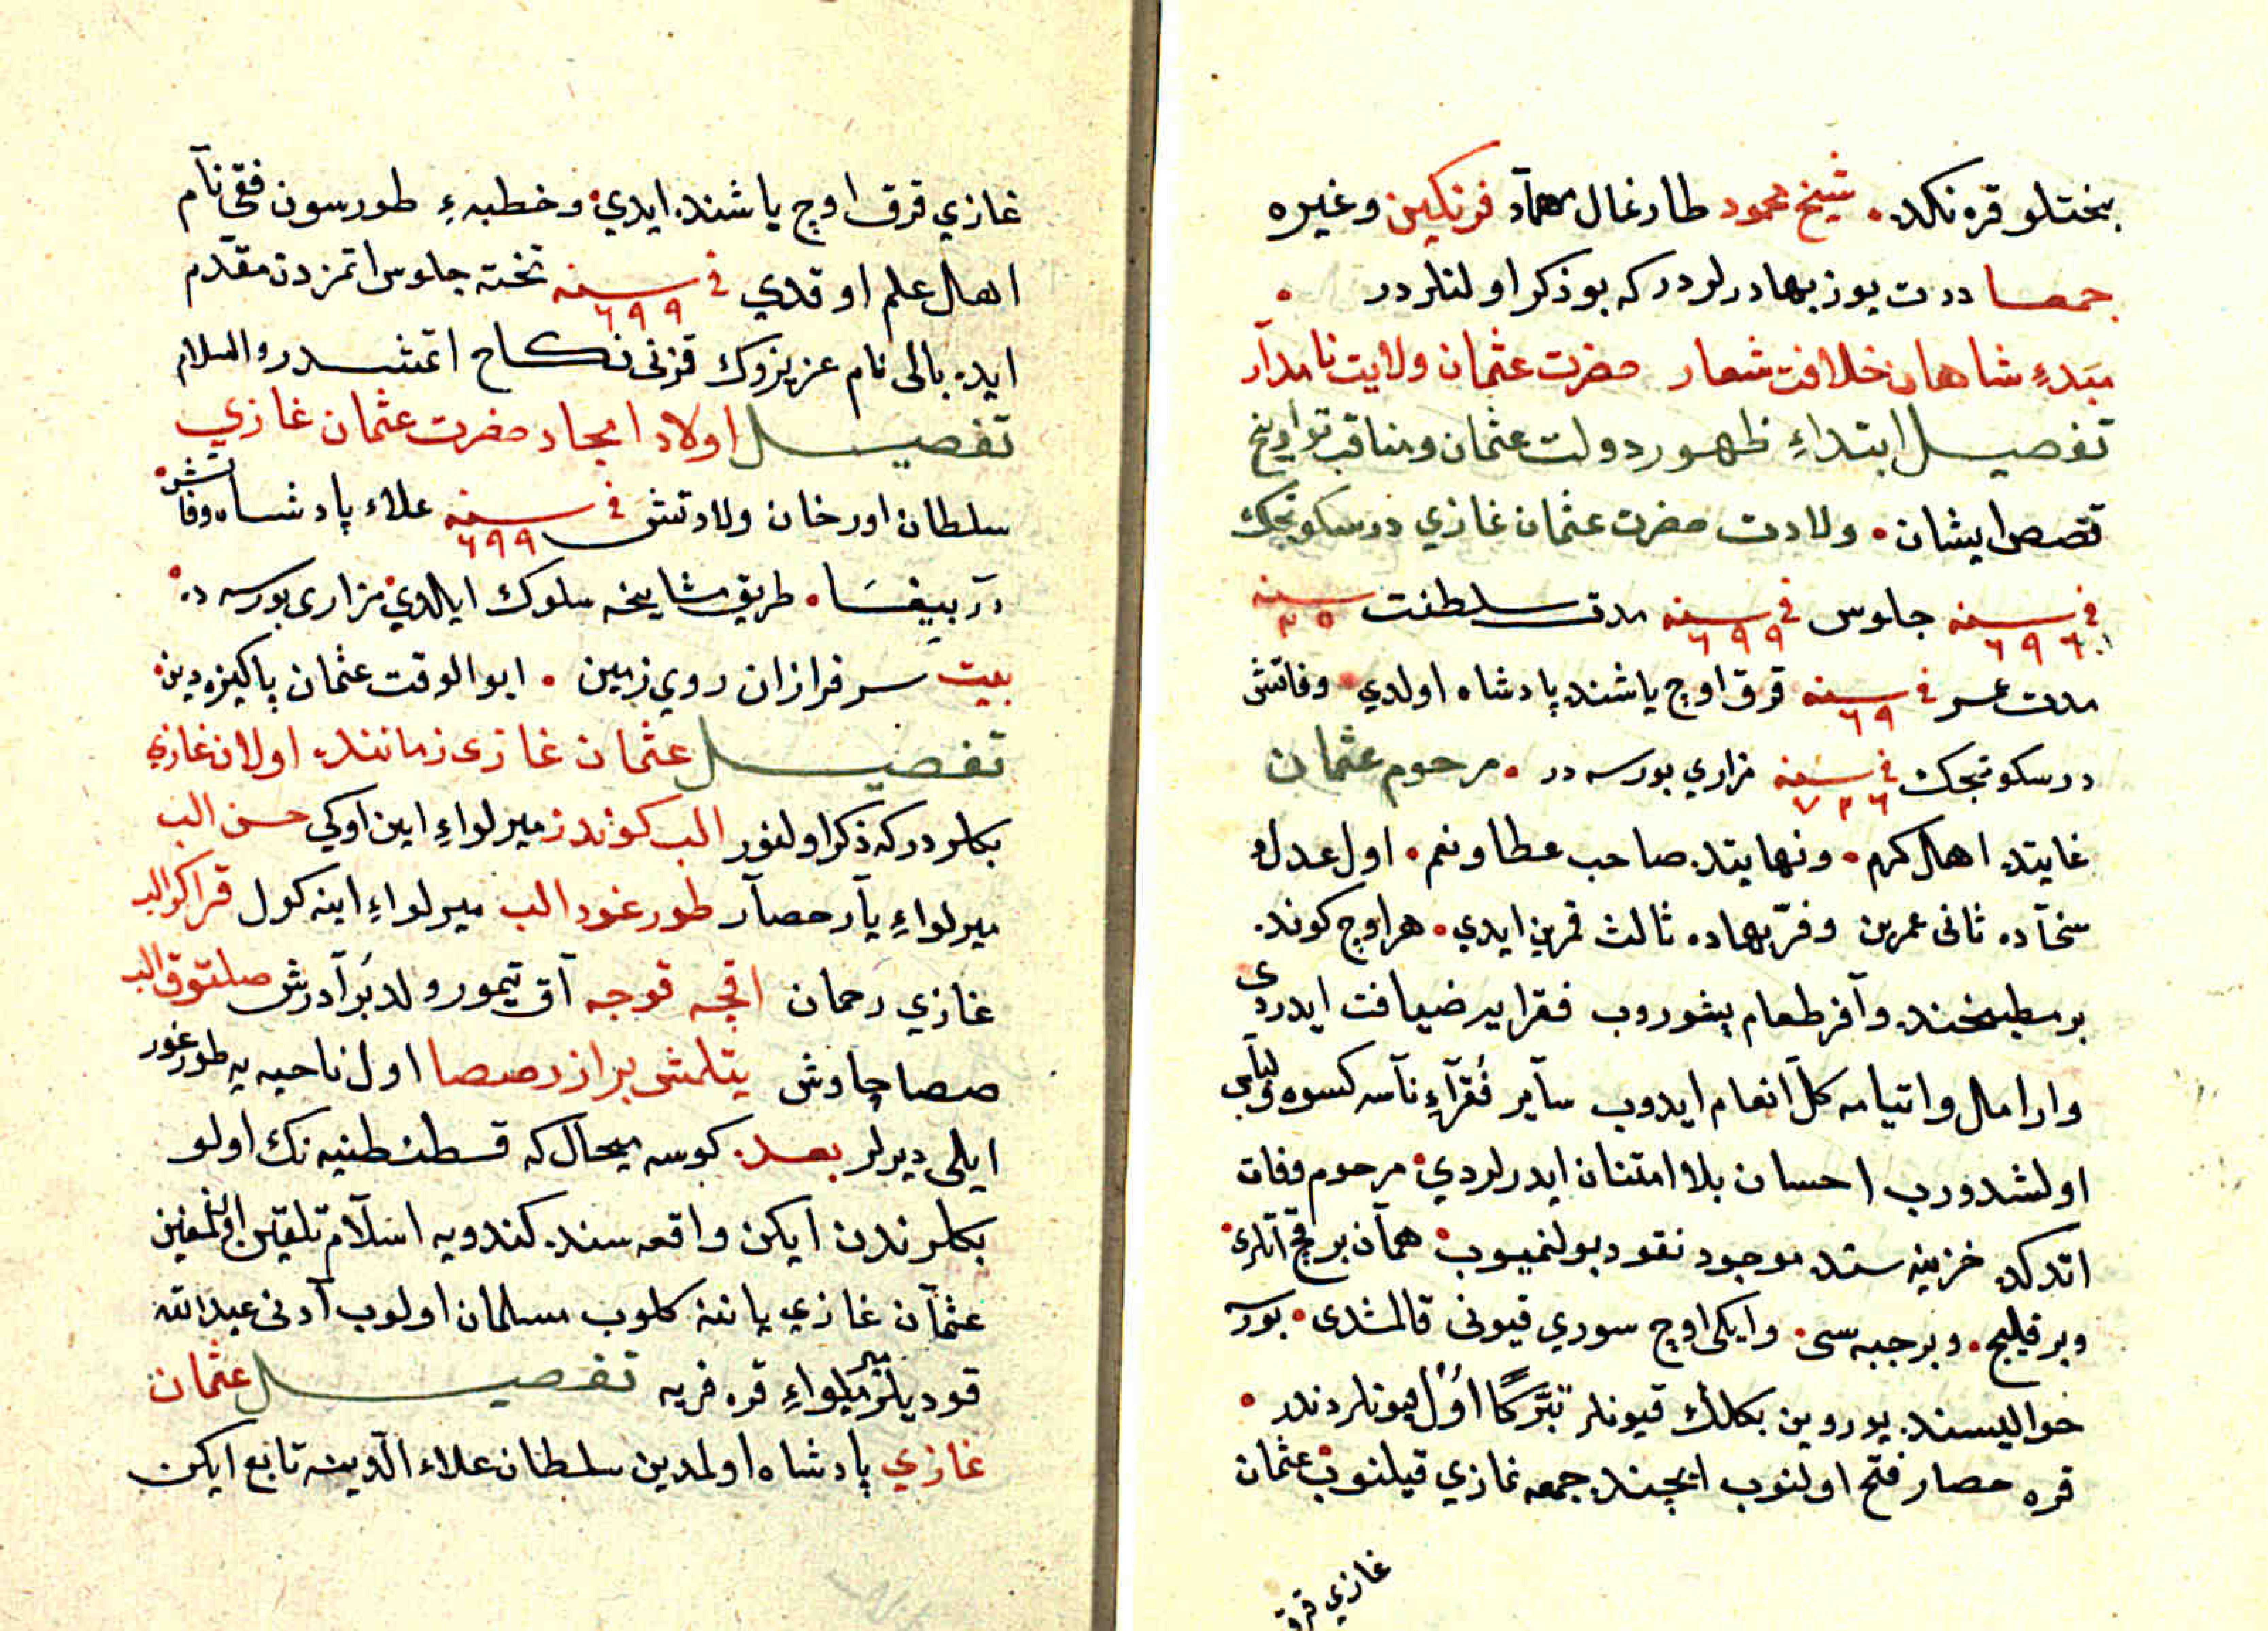 بختلو قره نكده • شيخ محمود طارغال مهمآد فرنكين و غيره
جمعا درت يوز بهادرلردر كه بو ذكر اولنلردر •
مبدءِ شاهان خلافت شعار حضرت عثمان ولايت نامدآر
تفصيل ابتداءِ ظهور دولت عثمان و مناقب تواريخ
قصص ايشان • ولادت حضرت عثمان غازي در سكوتجك
في سنه ٦٩٦ جلوس في سنه ٦٩٩ مدت سلطنت سنه ٣٥
مدت عمر في سنه ٦٩ قرق اوچ ياشنده پادشاه اولدي • وفاتش
در سكوتجك في سنه ٧٢٦ مزاري بورسه در • مرحوم عثمان
غايتده اهل كرم • و نهايتده صاحب عطا و نعم • اول عدل و
سخآده ثانى عمرين و فرّ بهاده ثالث قمرين ايدي • هر اوچ كونده
بر مطبخنده وآفر طعام پشوروب فقرايه ضيافت ايدردى
وار امال و ايتيامه كلّ انعام ايدوب سآير فُقرآءِ ناسه كسوه و لباس
اولشدروب احسان بلا امتنان ايدرلردي • مرحوم وفات
اتدكده خزينه سنده موجود نقود بولنميوب • همآن بر قچ آتلرى •
و بر قليج • و بر جبه سى • و ايكى اوچ سوري قيونى قالمشدى • بورسه
حواليسنده يوروين بكلك قيونلر تبرّكًا اوّل قيونلردندر •
قره حصار فتح اولنوب ايچنده جمعه نمازي قيلنوب • عثمان
غازي قرق
غازي قرق اوچ ياشنده ايدي • و خطبهءِ طورسون فقى نآم
اهل علم اوقدي في سنه ٦٩٩ تخته جلوس اتمزدن مقدّم
ايده بالى نام عزيزوك قزنى نكاح اتمشدر والسلام
تفصيل اولاد امجاد حضرت عثمان غازي
سلطان اورخان ولادتش في سنه ٦٩٩ علاء پادشاه وفاتش •
در بيغسَا • طريق مشايخه سلوك ايلدي • مزارى بورسه ده •
بيت سرفرازان روي زمين • ابو الوقت عثمان پاكيزه دين •
تفصيل عثمان غازى زماننده اولان غازي
بكلردر كه ذكر اولنور الب كوندز ميرلواءِ اين اوكي حسن الب
ميرلواءِ يآر حصآر طورغود الب ميرلواءِ اينه كول قراكز الب
غازي رحمان اقچه قوجه آق تيمور ولد بَرآدرش صلتوق الب
صمصا چاوش يتلمش برازر صمصا اول ناحيه يه طورغور
ايلى ديرلر بعده كوسه ميحال كه قسطنطنيه نك اولو
بكلرندن ايكن واقعه سنده كندويه اسلآم تلقين اولنمغين
عثمآن غازي ياننه كلوب مسلمان اولوب آدنى عبد الله
قوديلر ميرلواءِ قره فريه تفصيل عثمان
غازي پادشاه اولمدين سلطان علاء الدّينه تابع ايكن